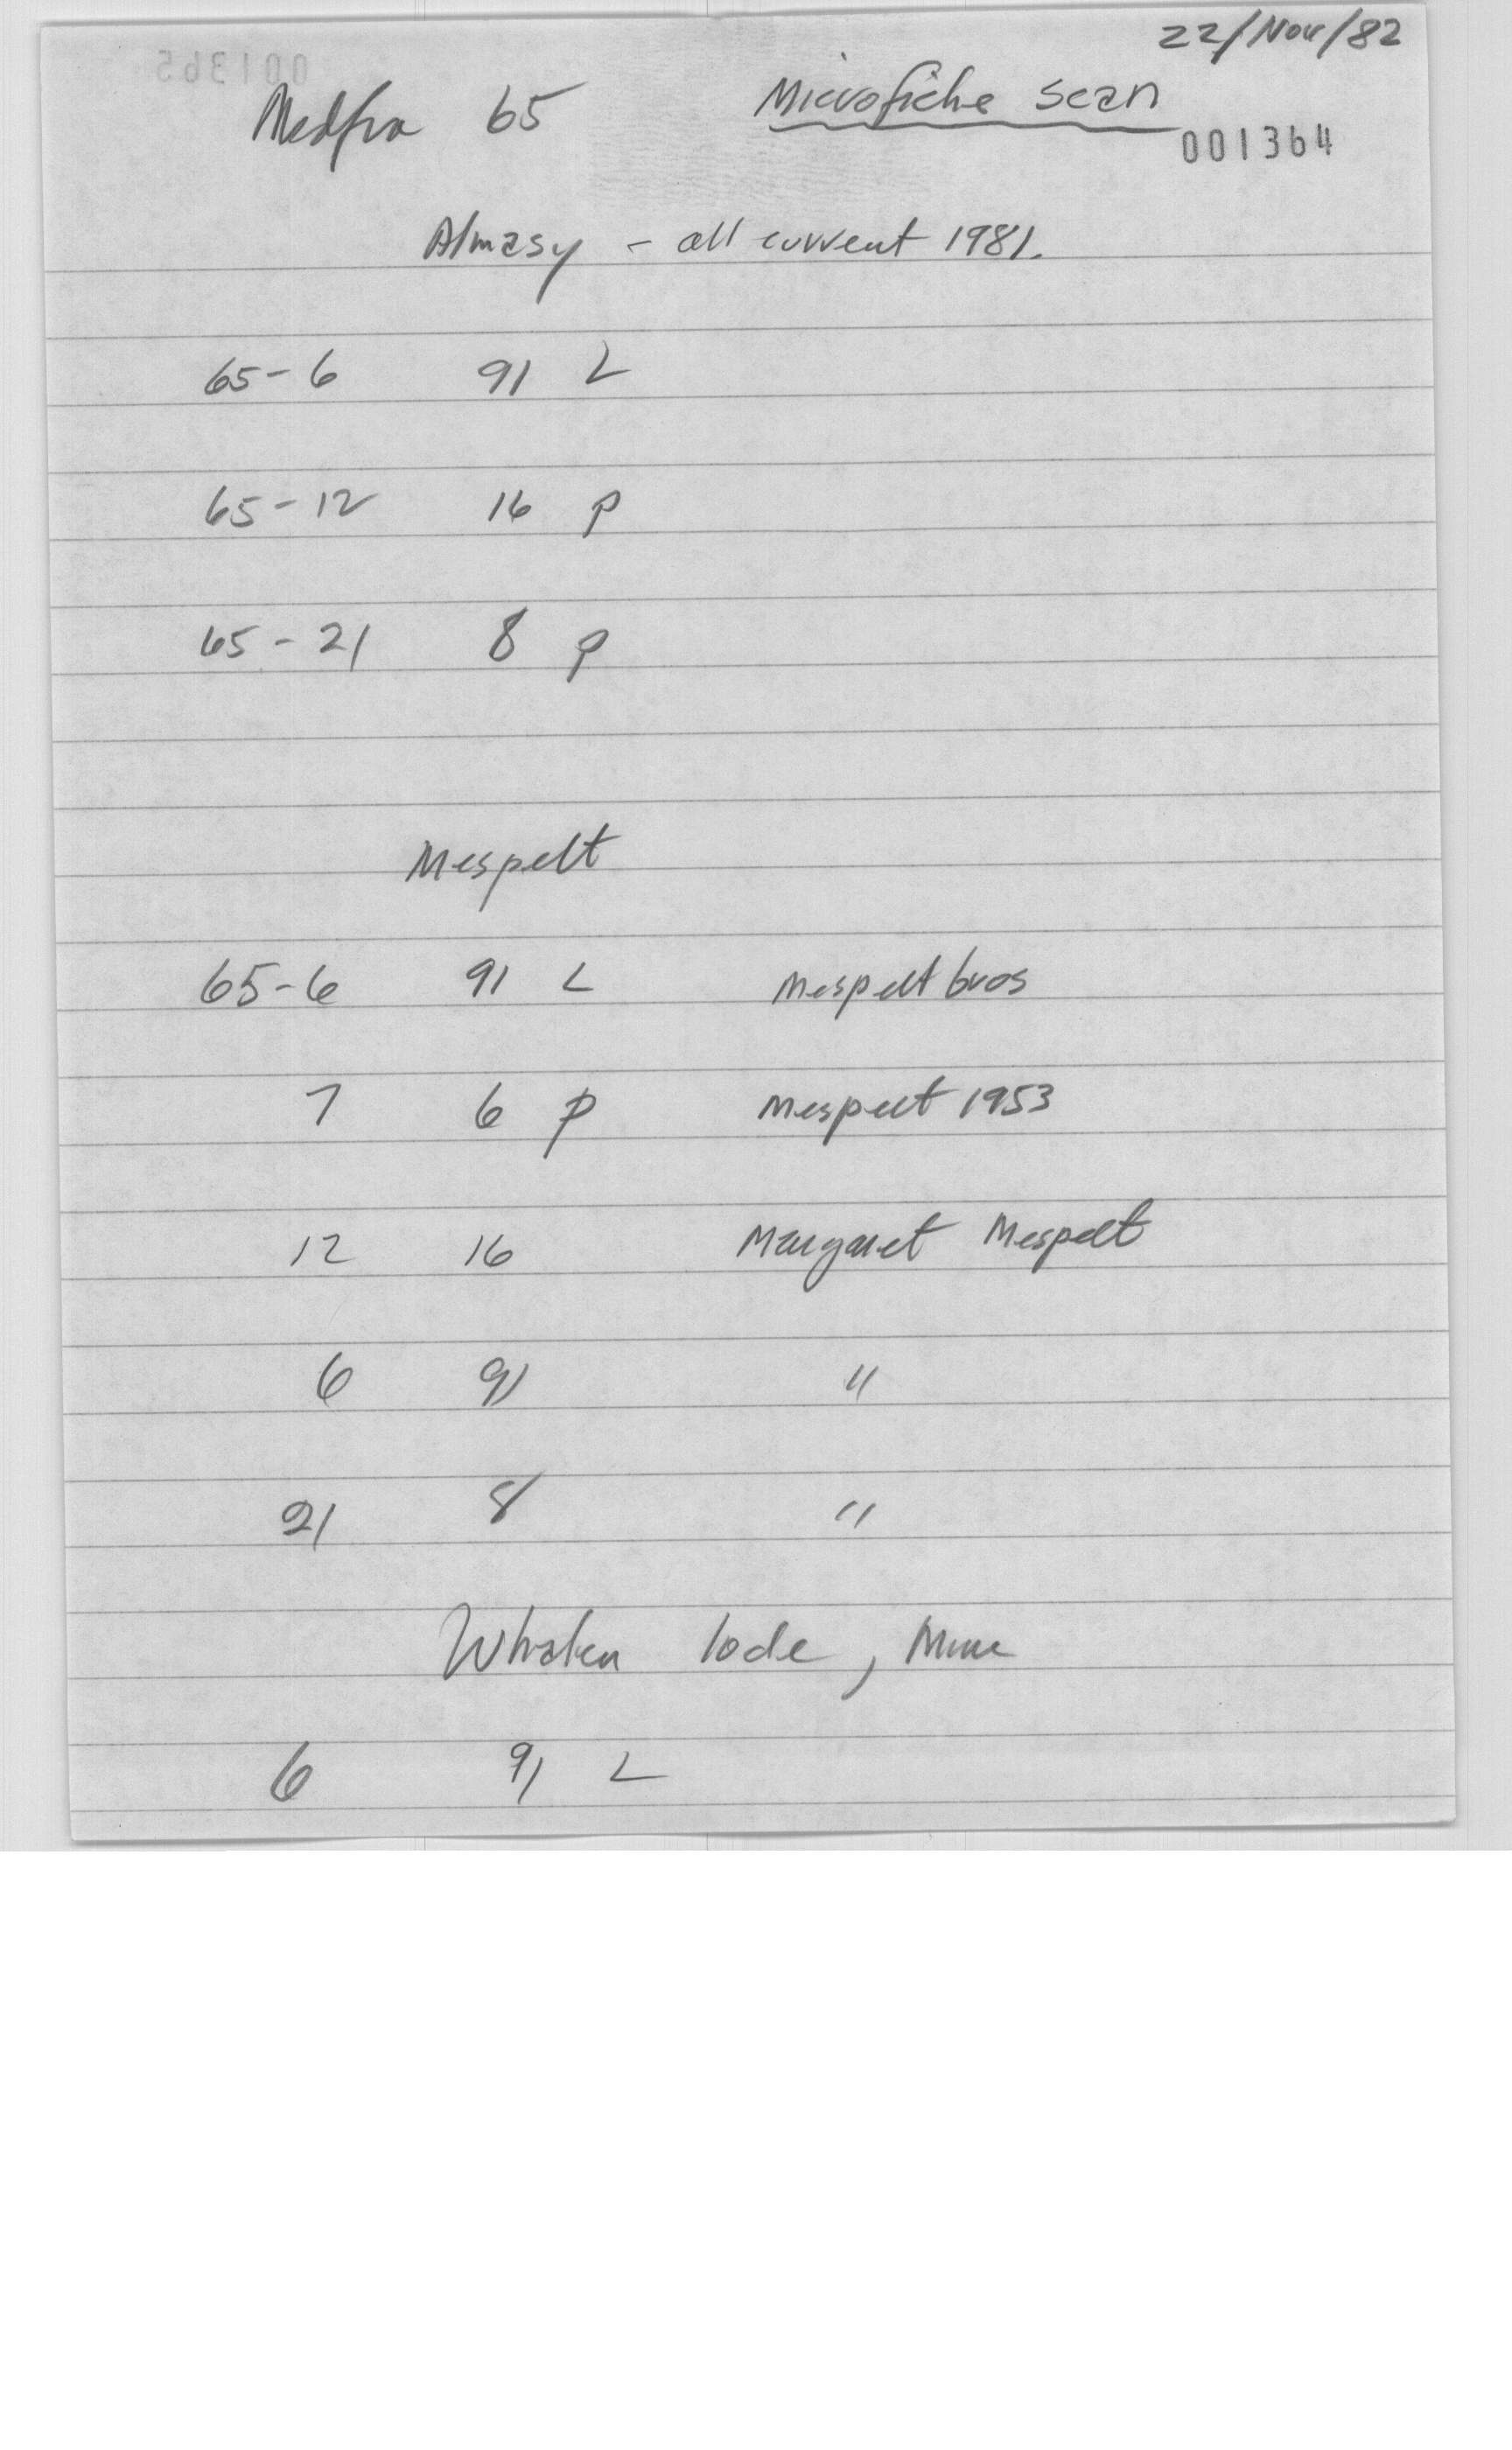 22/Nov/82
Medfra 65 Microfiche scan
001364
Almasy - all current 1981.
65-6 91 L
65-12 16 p
65-21 8 p
Mespelt
65-6 91 L Mespelt bros
7 6 p Mespelt 1953
12 16 Margaret Mespelt
6 91 "
21 8 "
Whalen lode, Mine
6 91 L